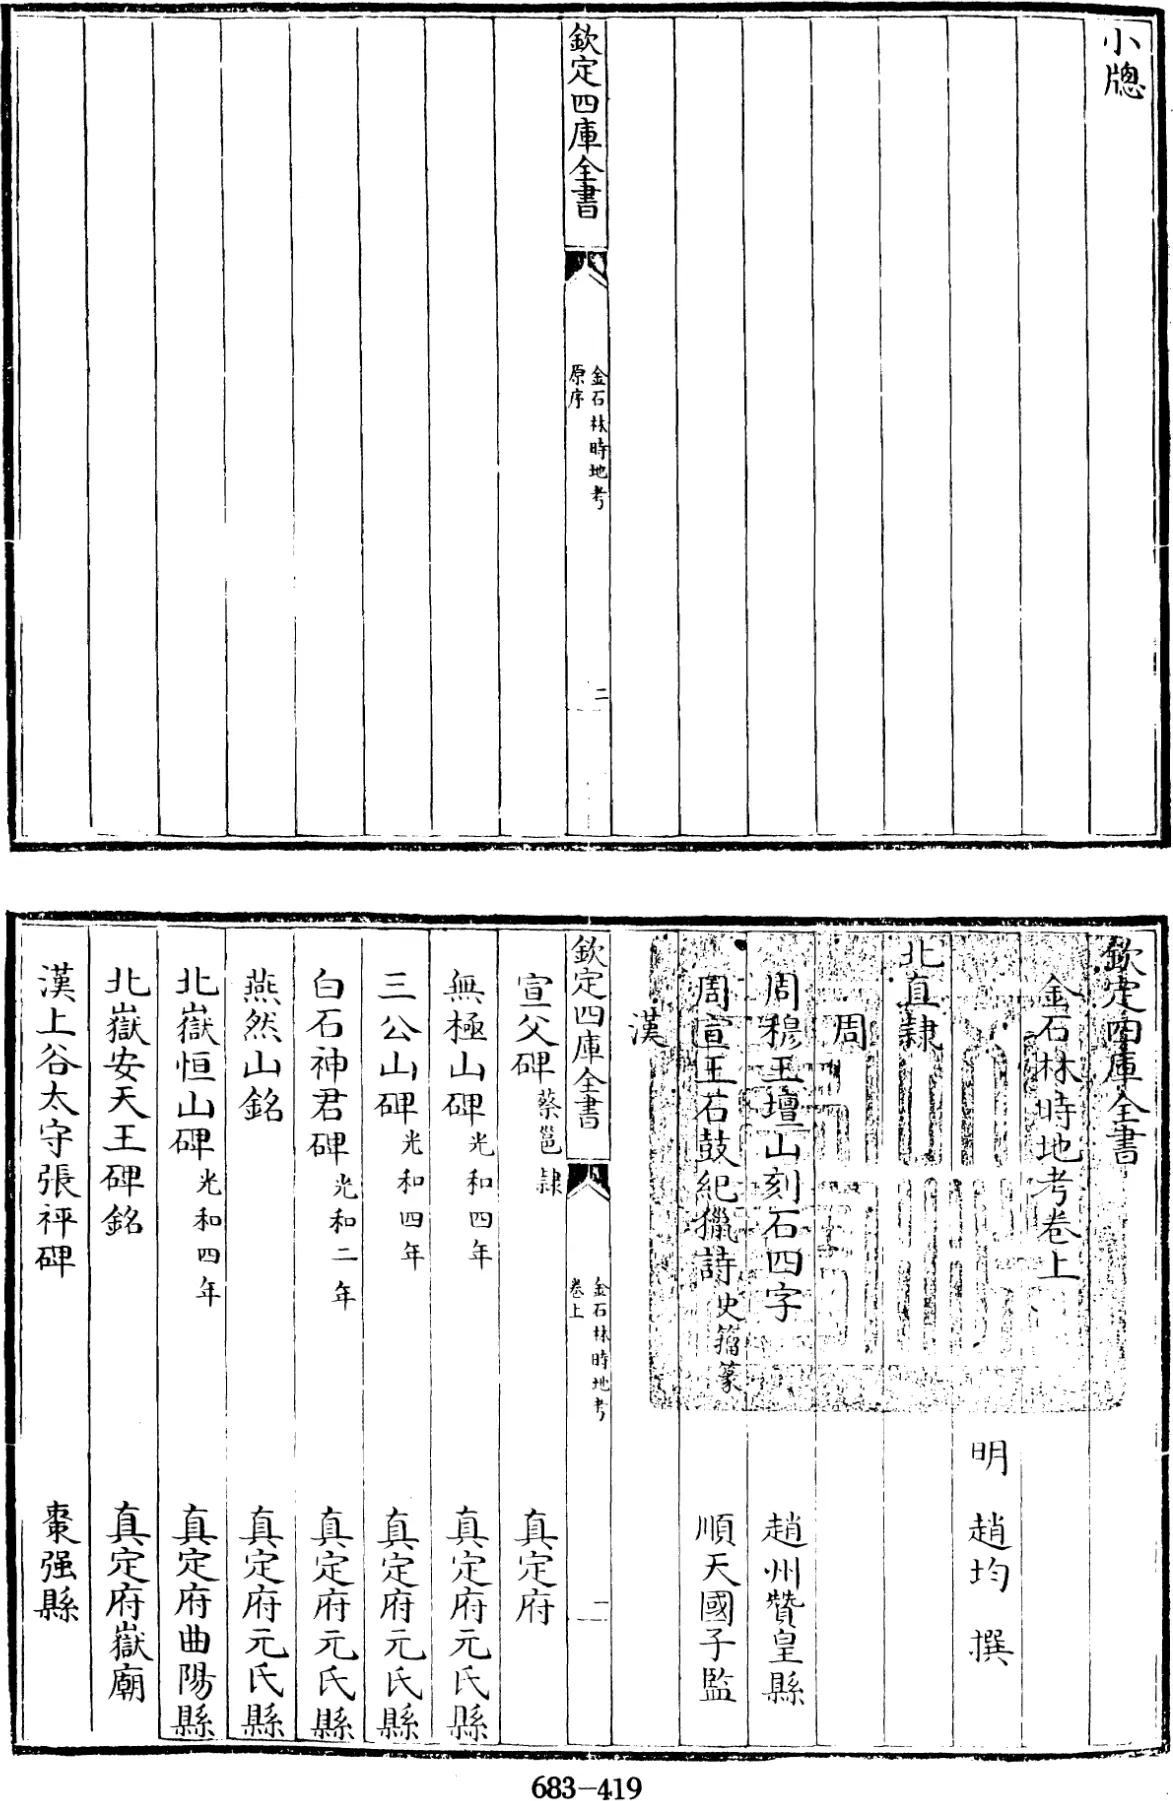 小牕
欽定四庫全書
金石林時地考
原序
二
欽定四庫全書
金石林時地考卷上
明 趙均 撰
北直隸
周
周穆王壇山刻石四字 趙州贊皇縣
周宣王石鼓紀獵詩 史籀篆 順天國子監
漢
欽定四庫全書
金石林時地考
卷上
一
宣父碑 蔡邕隸 真定府
無極山碑 光和四年 真定府元氏縣
三公山碑 光和四年 真定府元氏縣
白石神君碑 光和二年 真定府元氏縣
燕然山銘 真定府元氏縣
北嶽恒山碑 光和四年 真定府曲陽縣
北嶽安天王碑銘 真定府嶽廟
漢上谷太守張祚碑 棗强縣
683-419